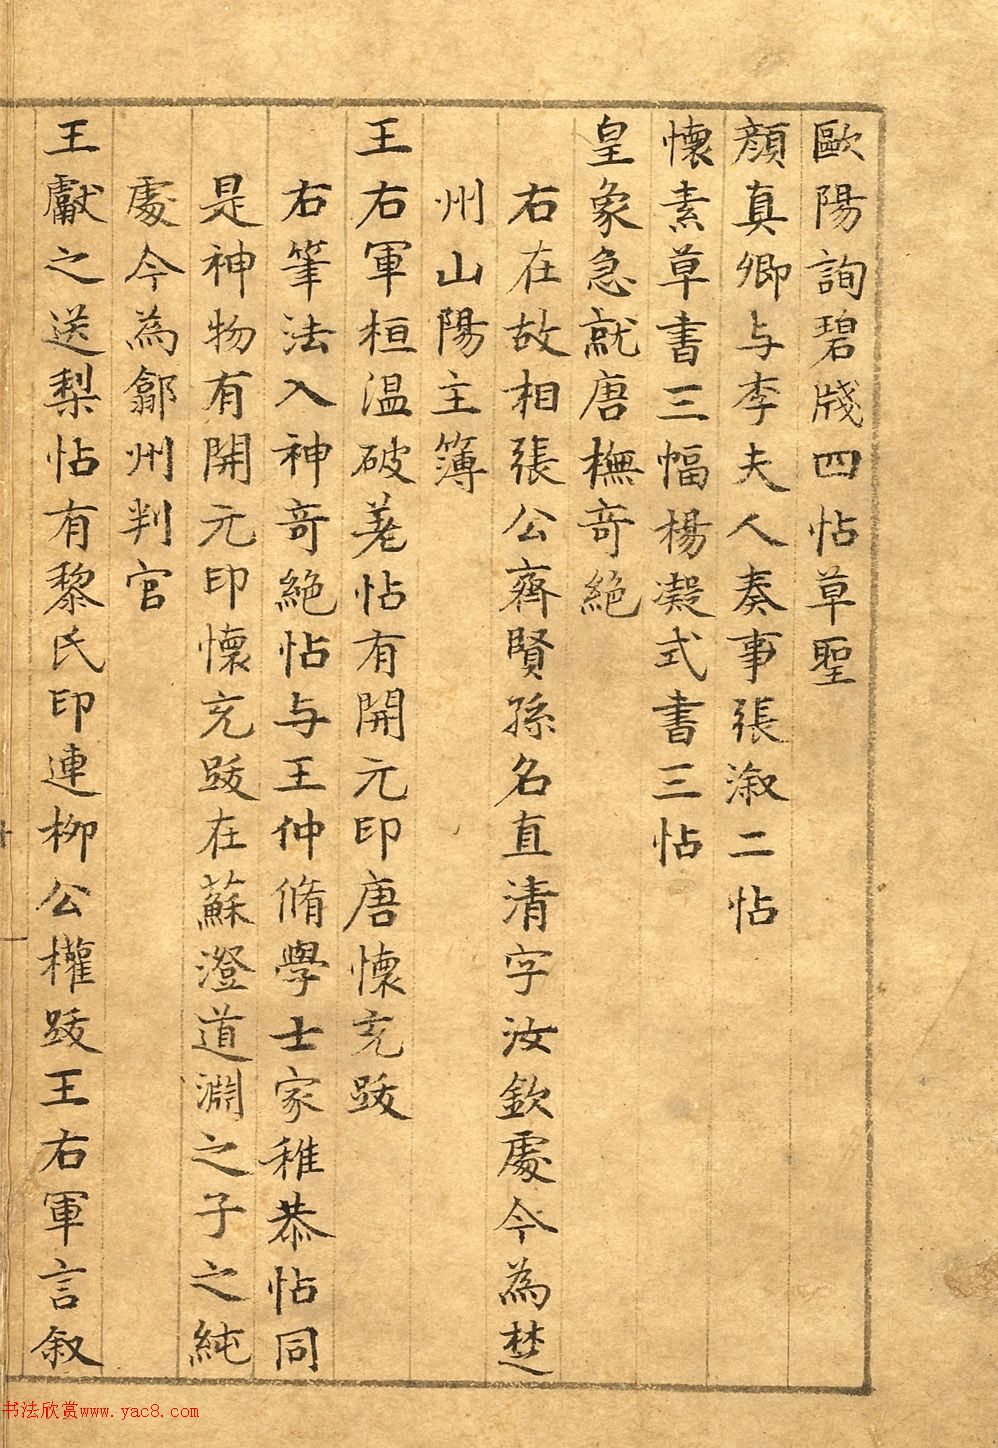 歐陽詢碧牋四帖草聖
顔真卿与李夫人奏事張淑二帖
懷素草書三幅楊凝式書三帖
皇象急就唐橅奇絶
右在故相張公齊賢孫名直清字汝欽處今為楚
州山陽主簿
王右軍桓温破羌帖有開元印唐懷充跋
右筆法入神奇絶帖与王仲脩學士家稚恭帖同
是神物有開元印懷充跋在蘇澄道淵之子之純
處今為鄜州判官
王獻之送梨帖有黎氏印連柳公權跋王右軍言叙
书法欣赏www.yac8.com